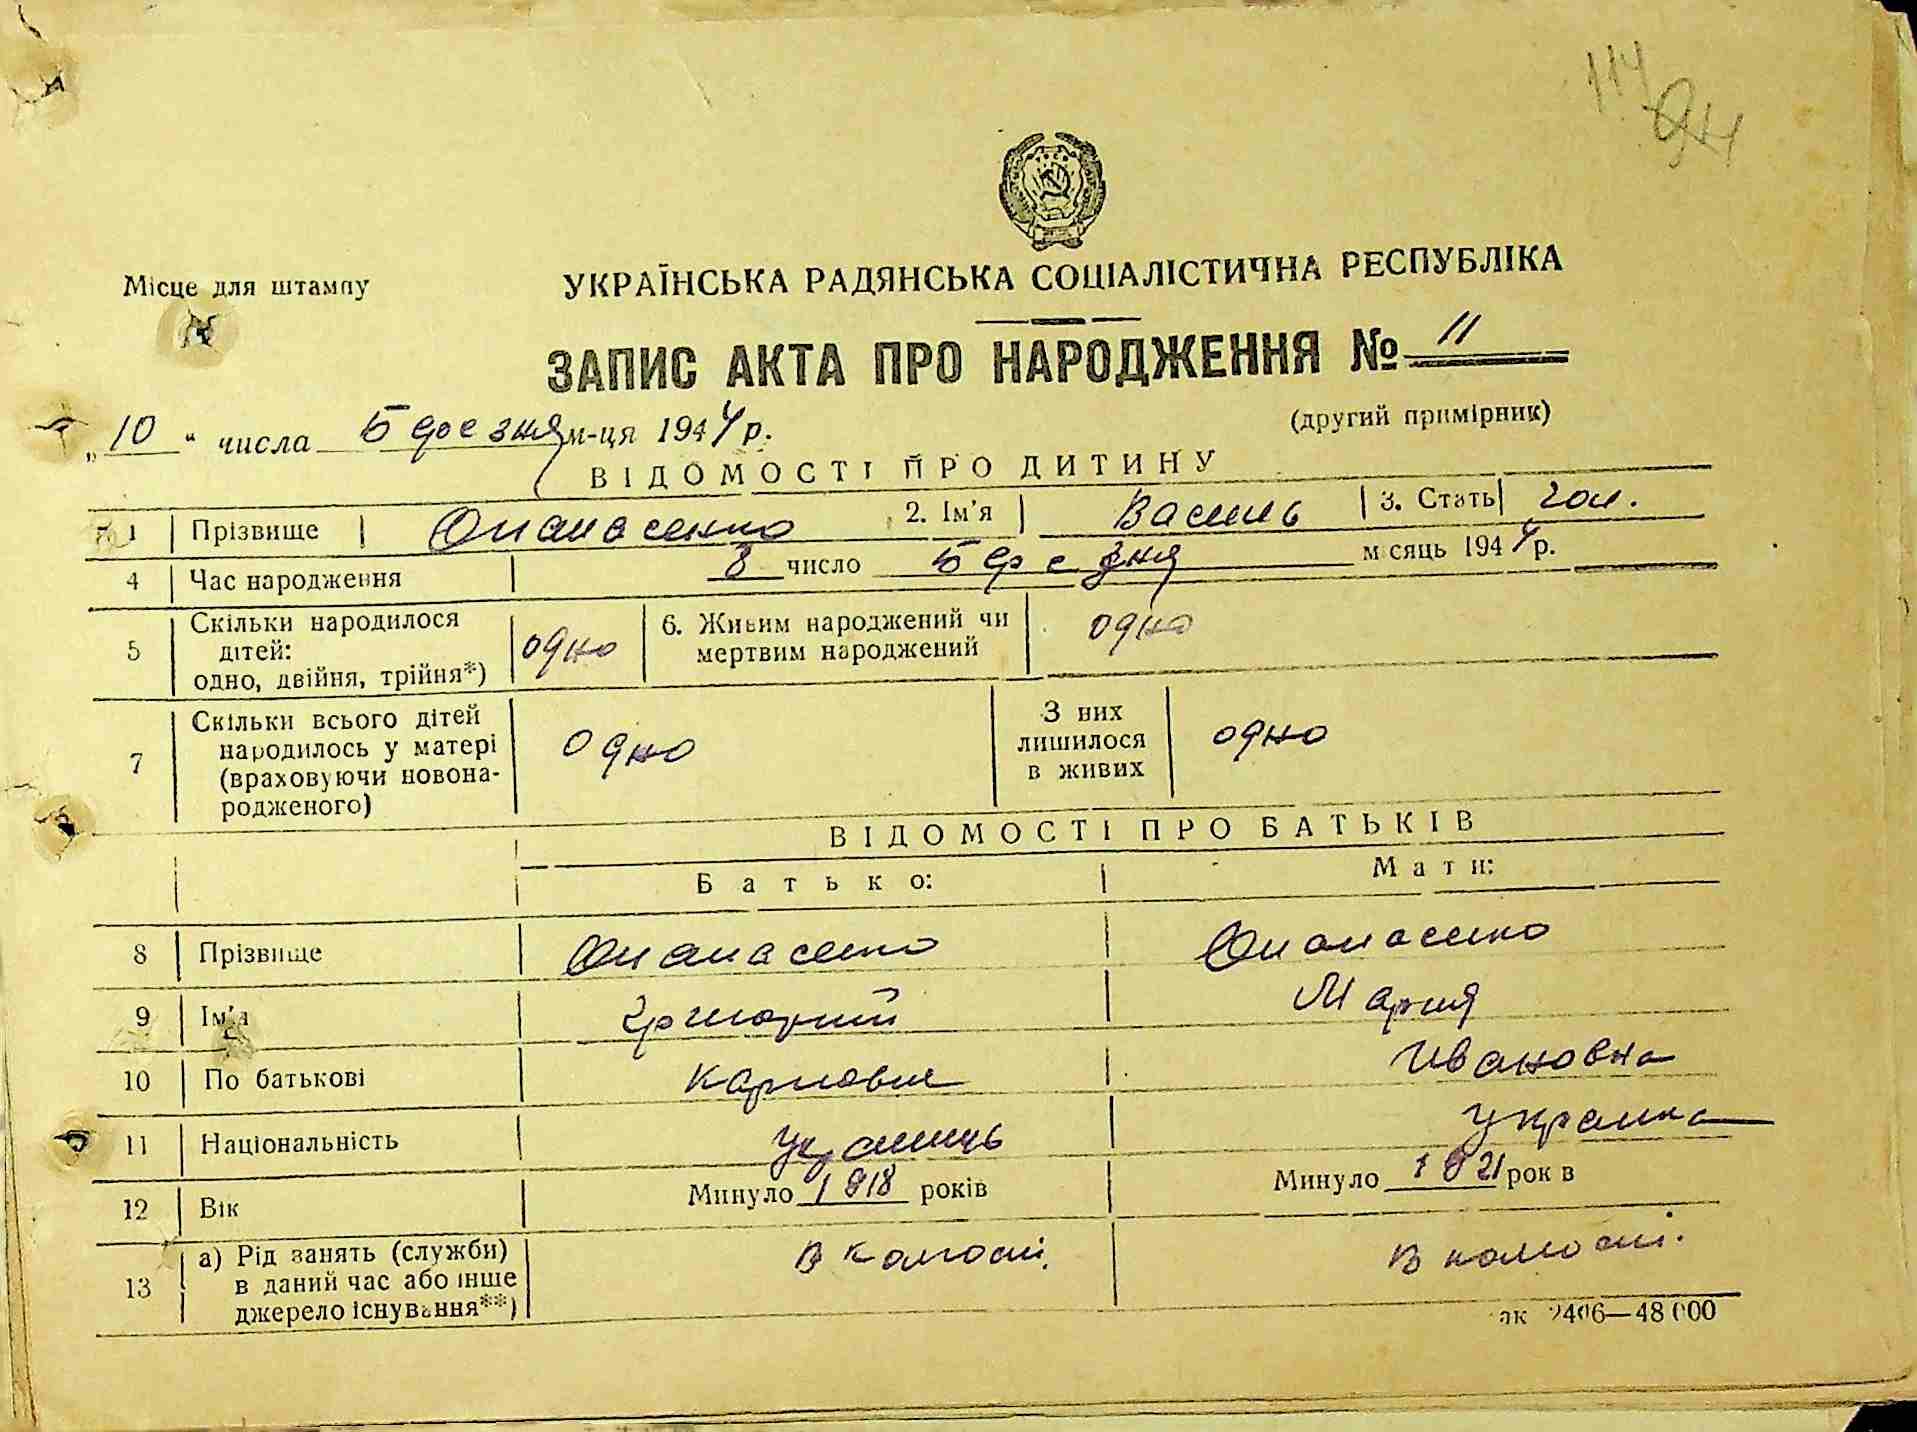 114
94
Місце для штампу
УКРАЇНСЬКА РАДЯНСЬКА СОЦІАЛІСТИЧНА РЕСПУБЛІКА
ЗАПИС АКТА ПРО НАРОДЖЕННЯ № 11
(другий примірник)
„10“ числа Березня м-ця 1944 р.
ВІДОМОСТІ ПРО ДИТИНУ
1 Прізвище Опанасенко 2. Ім'я Василь 3. Стать чол.
4 Час народження 8 число Березня місяць 1944 р.
5 Скільки народилося дітей: одно, двійня, трійня*) одно 6. Живим народжений чи мертвим народжений одно
7 Скільки всього дітей народилось у матері (враховуючи новонародженого) одно З них лишилося в живих одно
ВІДОМОСТІ ПРО БАТЬКІВ
Батько: Мати:
8 Прізвище Опанасенко Опанасенко
9 Ім'я Григорий Мария
10 По батькові Карпович Ивановна
11 Національність Украинець Украинка
12 Вік Минуло 1918 років Минуло 1921 років
13 а) Рід занять (служби) в даний час або інше джерело існування**) В колгоспі. В колгоспі.
2406—48 000